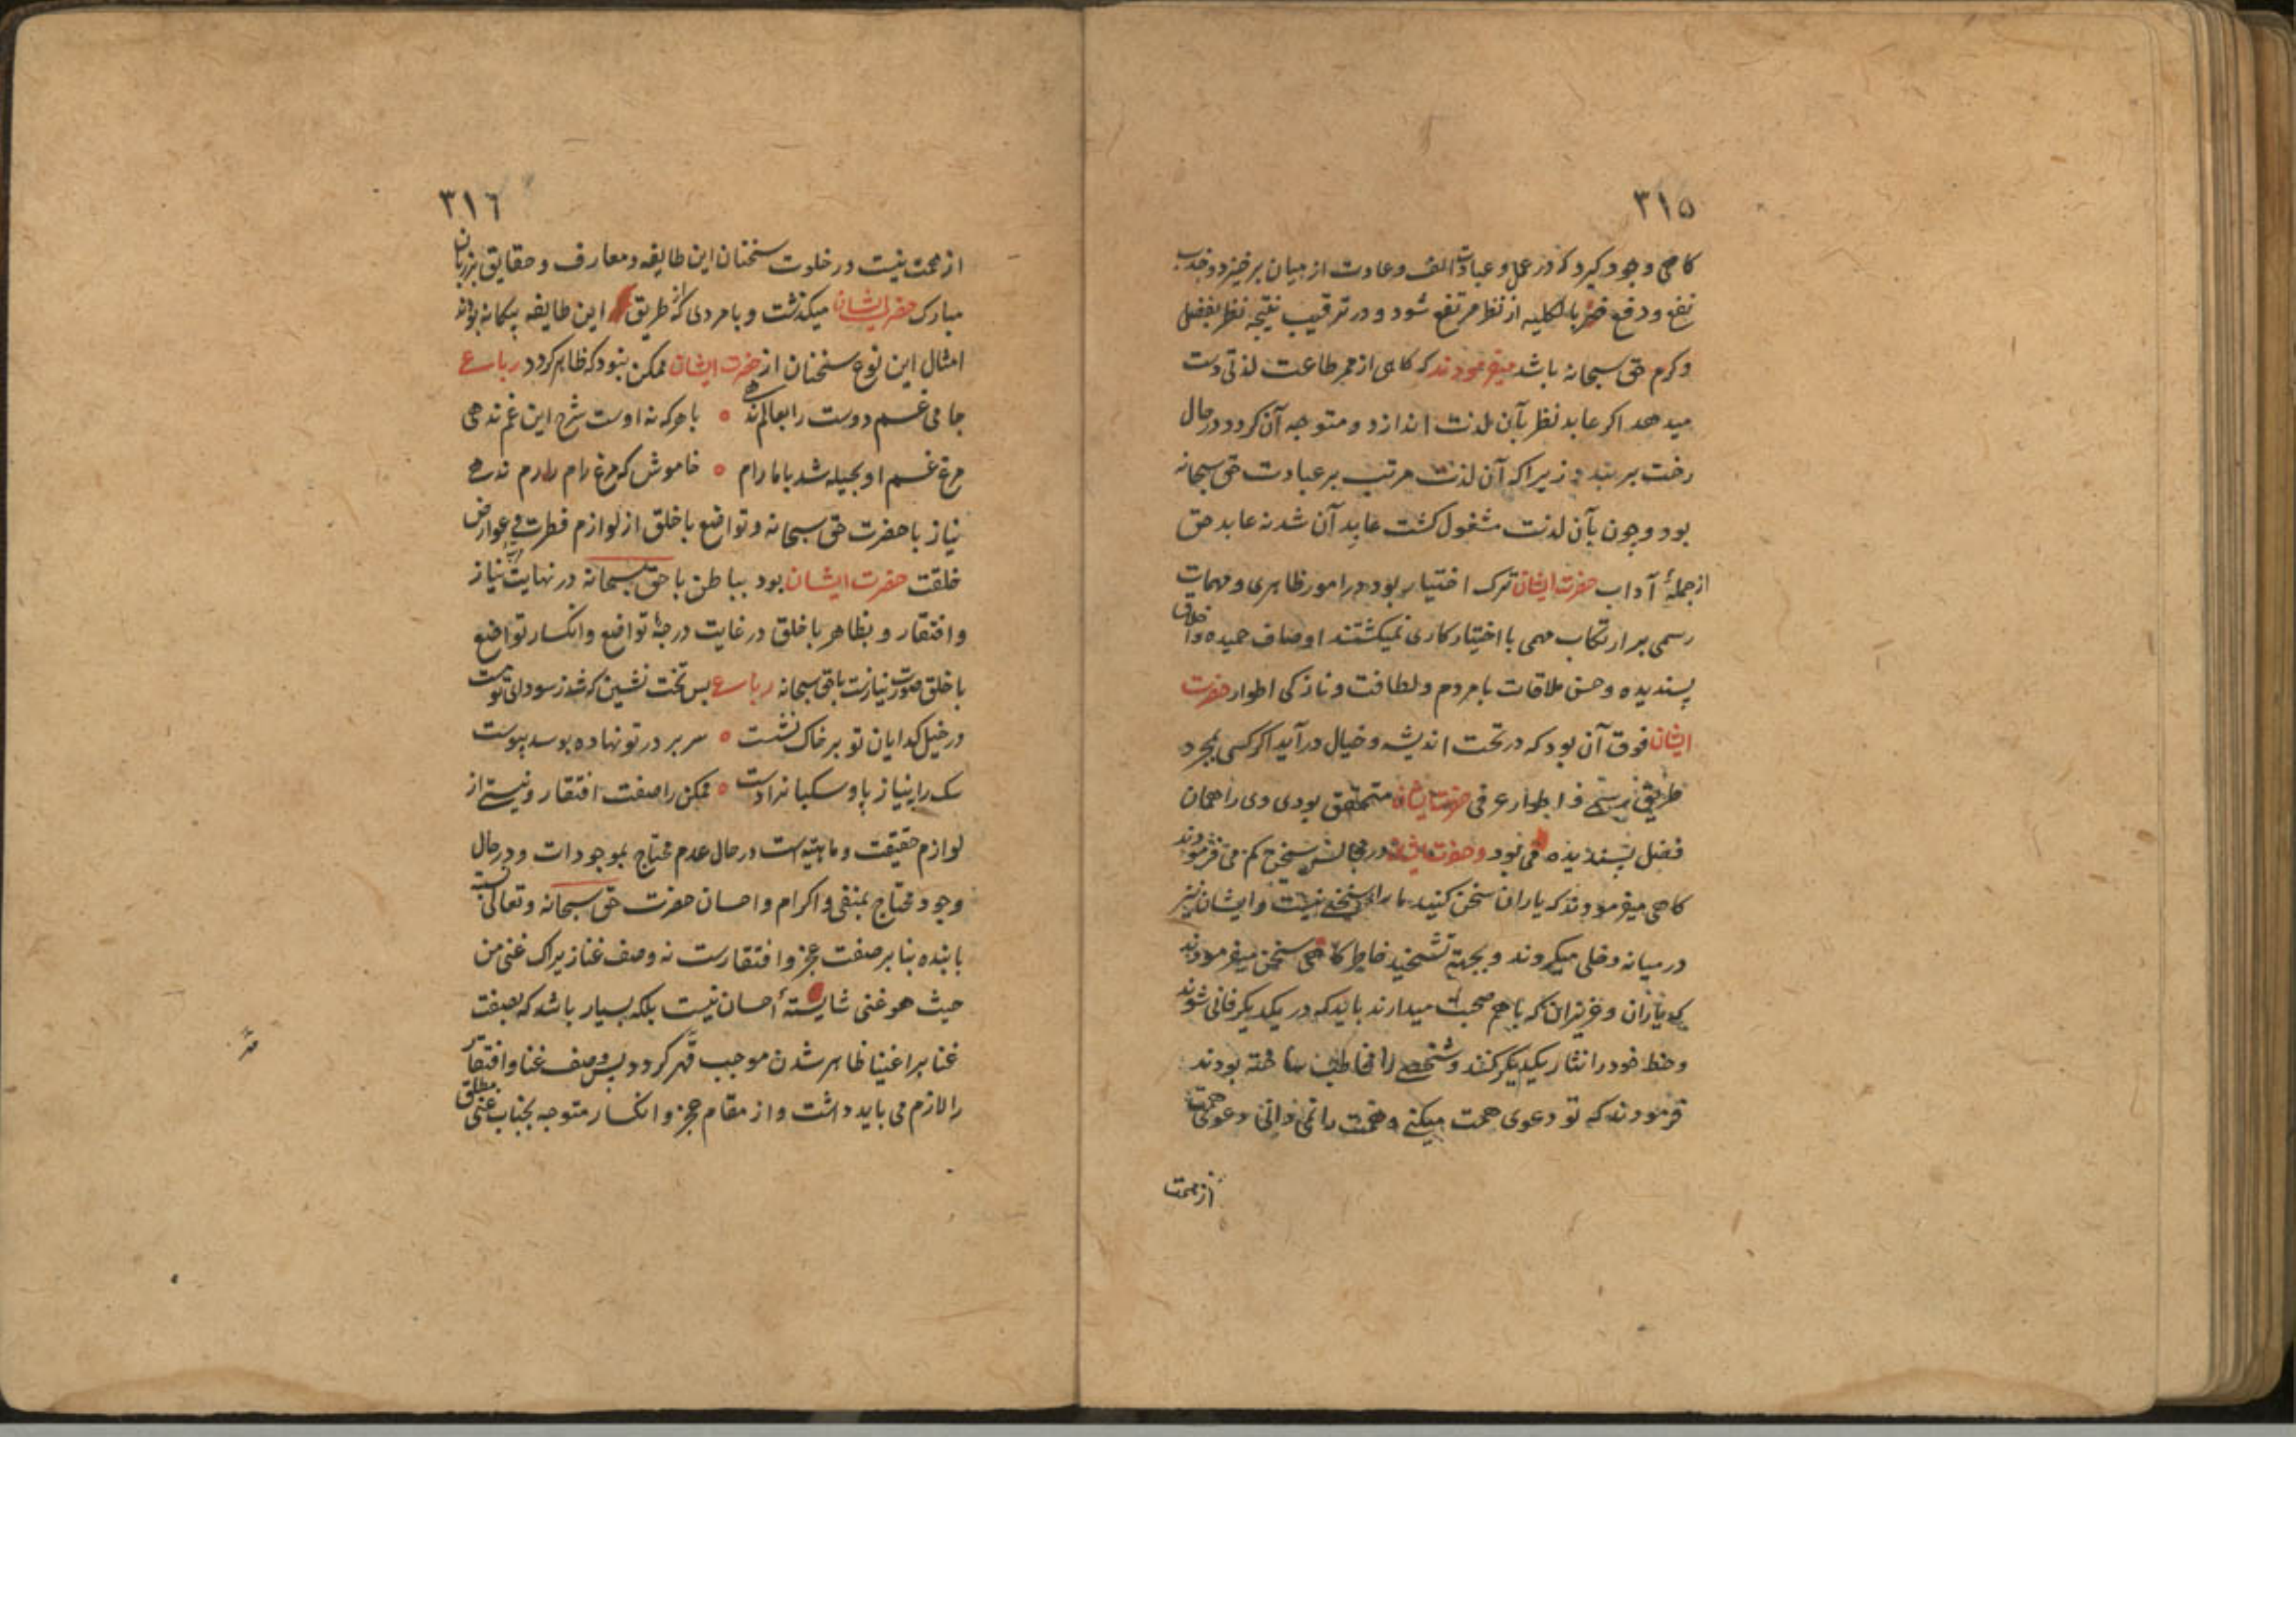 ٣١٥
كاهى وجود كيرد كه در عمل و عبادت الف و عادت از ميان برخيزد و جذب
نفع و دفع ضرر بالكليه از نظر مرتفع شود و در ترقيب نتيجه نظر بفضل
و كرم حق سبحانه باشد ميفرمودند كه كاهى از ممر طاعت لذتى دست
ميدهد اكر عابد نظر بآن لذت اندازد و متوجه آن كردد در حال
رخت بربندد زيرا كه آن لذت مرتب بر عبادت حق سبحانه
بود و چون بآن لذت مشغول كشت عابد آن شد نه عابد حق
از جملهٔ آداب حضرت ايشان ترك اختيار بود در امور ظاهرى و مهمات
رسمى بر ارتكاب مهمى با اختيار كارى نميكشتند اوصاف حميده و اخلاق
پسنديده و حسن ملاقات با مردم و لطافت و نازكى اطوار حضرت
ايشان فوق آن بود كه در تحت انديشه و خيال درآيد اكر كسى بمجرد
طريق اطوار عرفى حضرت ايشان متحقق بودى وى را همان
فضل پسنديده مى بود و حضرت ايشان در مجالس سخن كم مى فرمودند
كاهى ميفرمودند كه ياران سخن كنيد ما را سخنى نيست و ايشان نيز
در ميانه دخلى ميكردند و بجهة تشحيذ خاطر كاهى سخن ميفرمودند
كه ياران و عزيزان كه باهم صحبت ميدارند بايد كه در يكديكر فانى شوند
و حظ خود را نثار يكديكر كنند و شخصى را مخاطب ساخته بودند
فرمودند كه تو دعوى همت ميكنى و همت را نمى دانى دعوى همت
از همت
٣١٦
از همت نيست در خلوت سخنان اين طايفه و معارف و حقايق بر زبان
مبارك حضرت ايشان ميكذشت و با مردى كه از طريق اين طايفه بيكانه بودند
امثال اين نوع سخنان از حضرت ايشان ممكن نبود كه ظاهر كردد رباعى
جامى غم دوست را بعالم ندهى ٥ با هركه نه اوست شرح اين غم ندهى
مرغ غم او بحيله شد با ما رام ٥ خاموش كه مرغ رام را رم ندهى
نياز با حضرت حق سبحانه و تواضع با خلق از لوازم فطرت و عوارض
خلقت حضرت ايشان بود بباطن با حق سبحانه در نهايت مرتبه نياز
و افتقار و بظاهر با خلق در غايت درجهٔ تواضع و انكسار تواضع
با خلق صورت نيازست با حق سبحانه رباعى بس تخت نشين كه شد ز سوداى تو پست
در خيل كدايان تو بر خاك نشست ٥ سر بر در تو نهاده بوسد پيوست
سك را بنياز پا و سكبانرا دست ٥ ممكن را صفت افتقار و نيستى از
لوازم حقيقت و ماهيتست در حال عدم محتاج بموجودات و در حال
وجود محتاج بمبقى و اكرام و احسان حضرت حق سبحانه و تعالى نسبت
با بنده بنا بر صفت عجز و افتقارست نه وصف غنا زيراك غنى من
حيث هو غنى شايستهٔ احسان نيست بلكه بسيار باشد كه بصفت
غنا بر اغنيا ظاهر شدن موجب قهر كردد پس وصف غنا و افتقار
را لازم مى بايد داشت و از مقام عجز و انكسار متوجه بجناب غنى مطلق